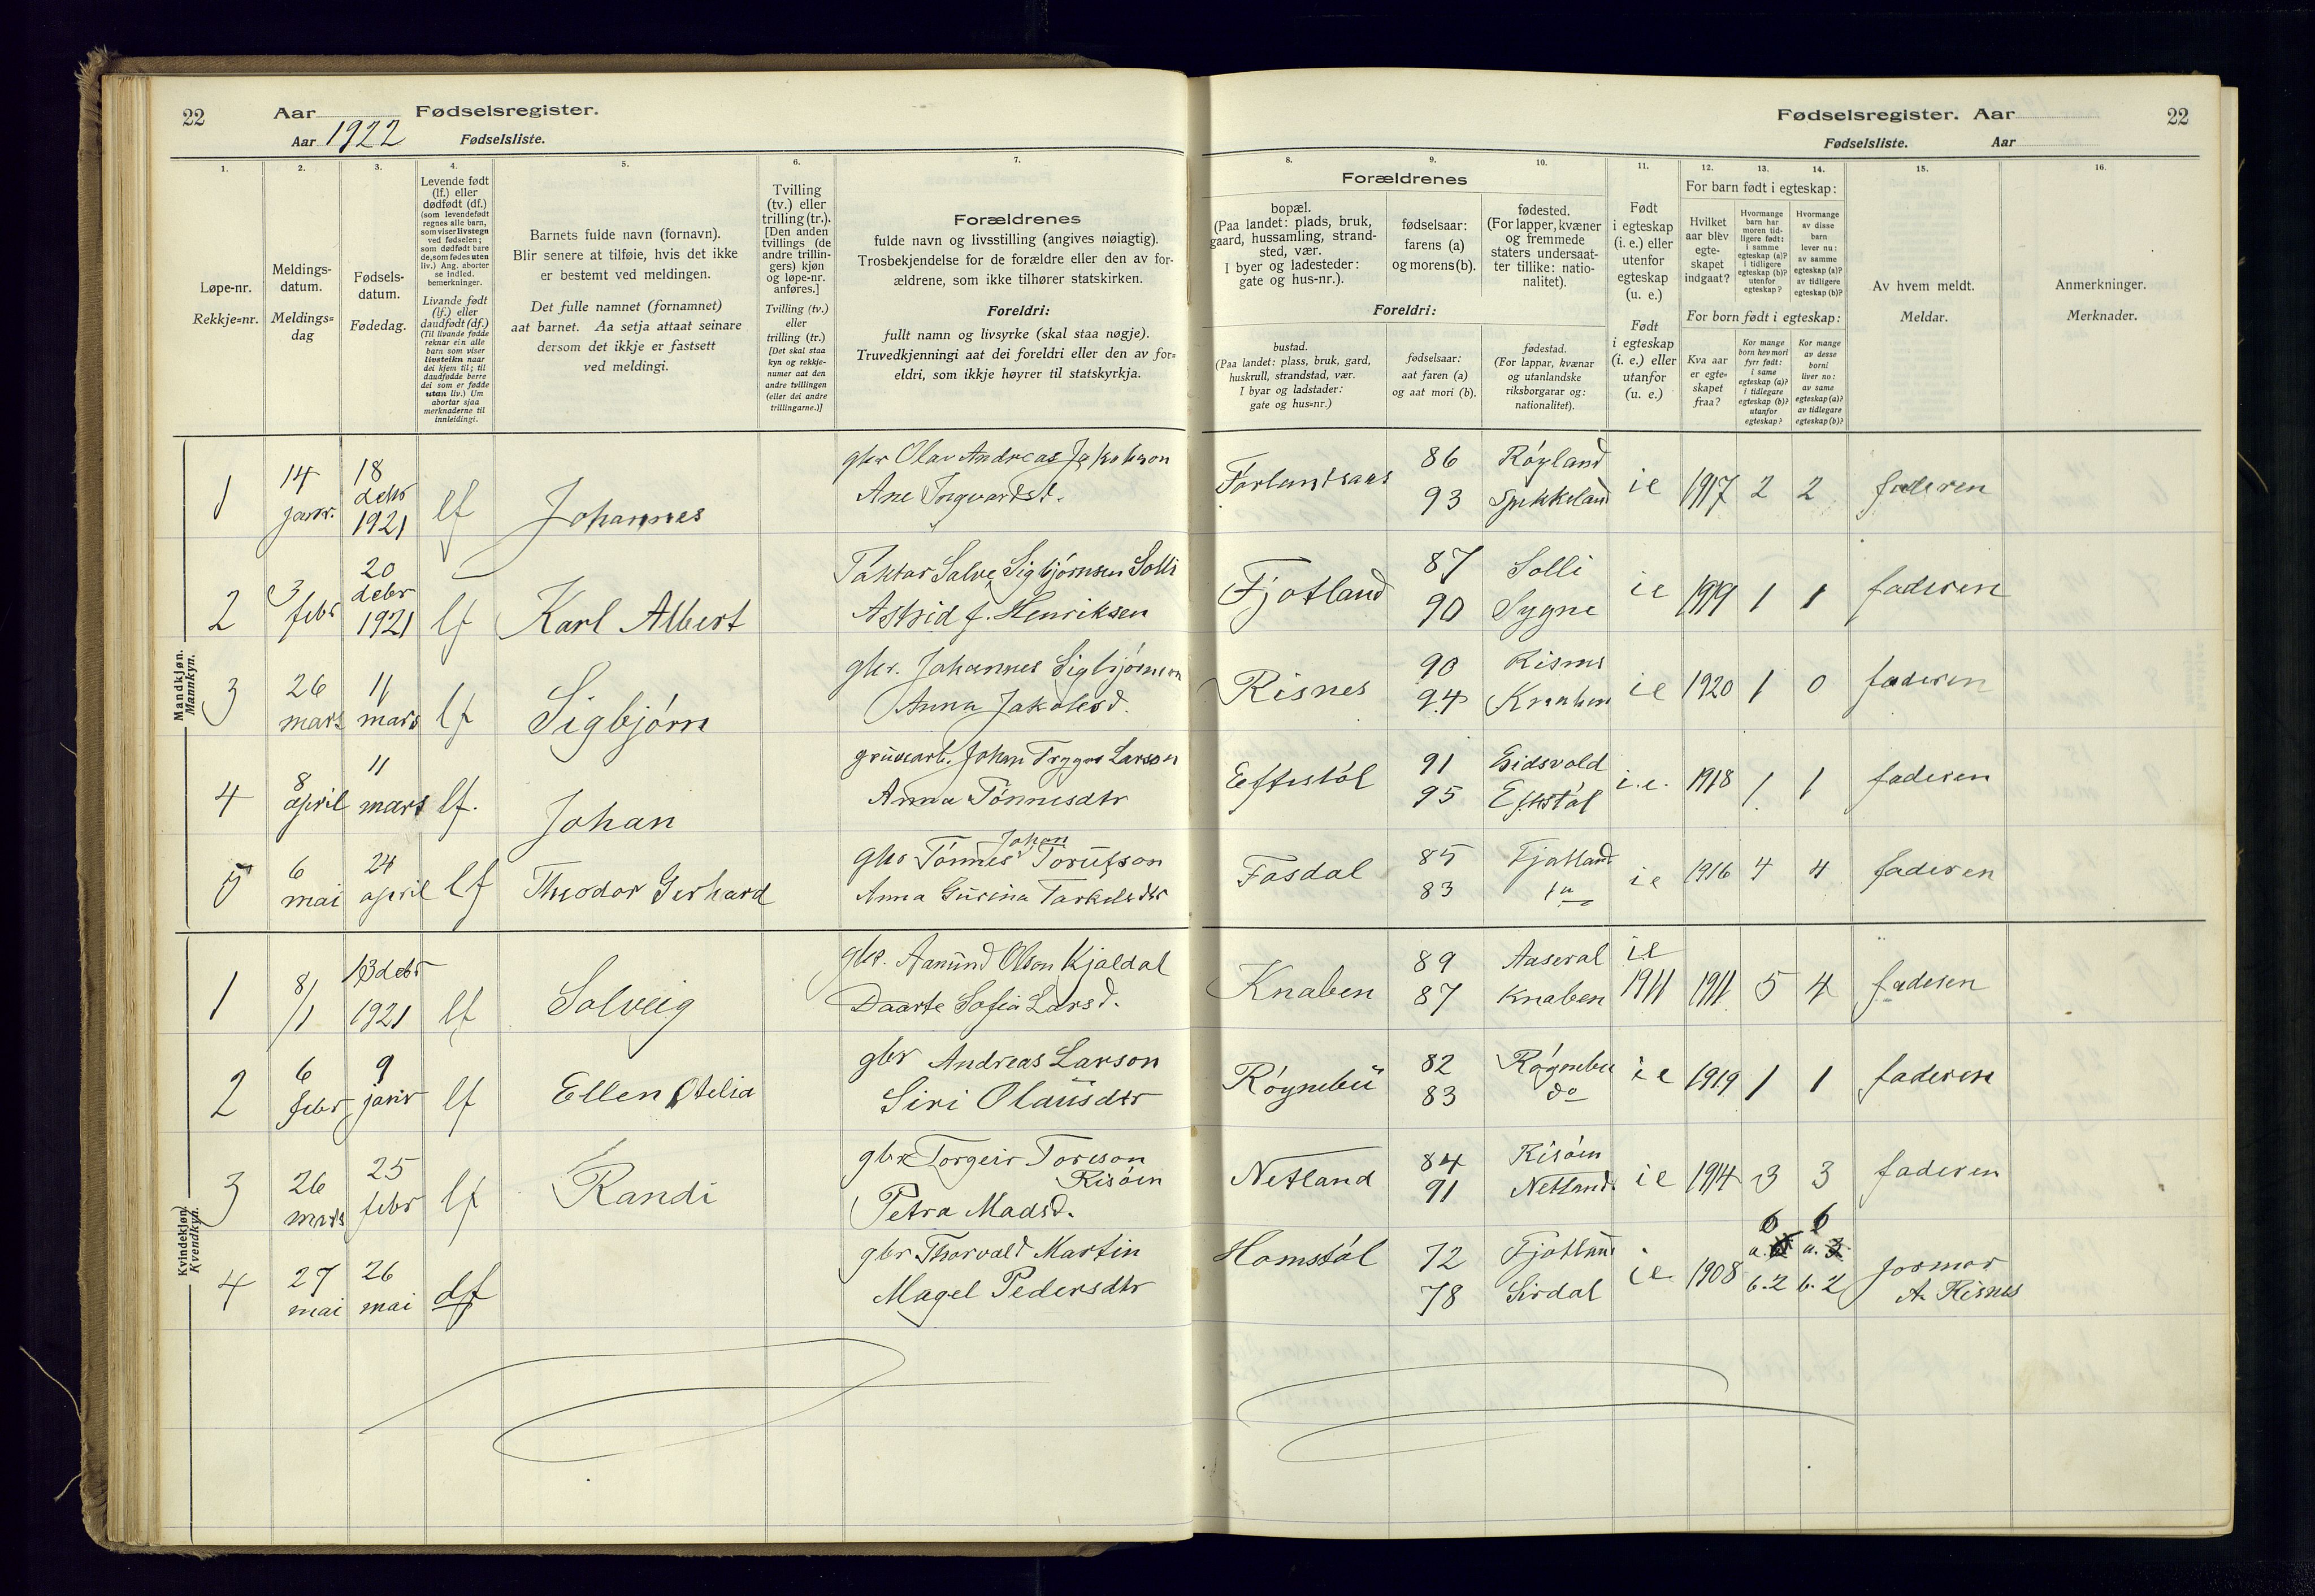 22 Aar Fødselsregister.
Aar 1922 Fødselsliste.
1. 2. 3. 4. 5. 6. 7.
Løpe-nr.
Rekkje=nr.
Meldings-
datum.
Meldings=
dag
Fødsels-
datum.
Fødedag.
Levende født
(lf.) eller
dødfødt (df.)
(som levendefødt
regnes alle barn,
som viser livstegn
ved fødselen;
som dødfødt bare
de, som fødes uten
liv.) Ang. aborter
se indled.
bemerkninger.
Livande født
(lf.) eller
daudfødt (df.)
(Til livande fødde
reknar ein alle
barn som viser
livsteikn naar
dei kjem til; til
daudfødde berre
dei som er fødde
utan liv.) Um
abortar sjaa
merknaderne til
innleidingi.
Barnets fulde navn (fornavn).
Blir senere at tilføie, hvis det ikke
er bestemt ved meldingen.
Det fulle namnet (fornamnet)
aat barnet. Aa setja attaat seinare
dersom det ikkje er fastsett
ved meldingi.
Tvilling
(tv.) eller
trilling (tr.).
[Den anden
tvillings (de
andre trillin-
gers) kjøn
og løpe-nr.
anføres.]
Tvilling (tv.)
eller
trilling (tr.)
[Det skal staa
kyn og rekkje-
numer aat den
andre tvillingen
(eller dei andre
trillingarne.)]
Forældrenes
fulde navn og livsstilling (angives nøiagtig).
Trosbekjendelse for de forældre eller den av for-
ældrene, som ikke tilhører statskirken.
Foreldri:
fullt namn og livsyrke (skal staa nøgje).
Truvedkjenningi aat dei foreldri eller den av for=
eldri, som ikkje høyrer til statskyrkja.
Mandkjøn.
Mannkyn.
1 14 janr. 18 debr 1921 lf Johannes gbr Olav Andreas Jakobson
Ane Ingvardsd.
2 3 febr 20 debr 1921 lf Karl Albert Salve Sigbjørnsen Solli
Astrid f. Henriksen
3 26 mars 11 mars lf Sigbjørn gbr. Johannes Sigbjørnson
Anna Jakobsd.
4 8 april 11 mars lf. Johan gruvearb. Johan Trygve Larson
Anna Tønnesdtr
5 6 mai 24 april lf Theodor Gerhard gbr Tønnes Johan
Anna Gurina
Kvindekjøn.
Kvendkyn.
1 8/1 13 debr 1921 lf Solveig gbr. Aanund Olson Kjaldal
Daarte Sofia Larsd.
2 6 febr 9 janr lf Ellen Otelia gbr Andreas Larson
Siri Olausdtr
3 26 mars 25 febr lf Randi gbr Torgeir Toreson
Risøin
Petra Madsd.
4 27 mai 26 mai df gbr Thorvald Martin
Magel Pedersdtr
Fødselsregister. Aar 22
Fødselsliste. Aar
8. 9. 10. 11. 12. 13. 14. 15. 16.
Forældrenes
bopæl.
(Paa landet: plads, bruk,
gaard, hussamling, strand-
sted, vær.
I byer og ladesteder:
gate og hus-nr.).
fødselsaar:
farens (a)
og morens (b).
fødested.
(For lapper, kvæner
og fremmede
staters undersaat-
ter tillike: natio-
nalitet).
Foreldri:
bustad.
(Paa landet: plass, bruk, gard,
huskrull, strandstad, vær.
I byar og ladstader:
gate og hus=nr.)
fødselsaar:
aat faren (a)
og aat mori (b).
fødestad.
(For lappar, kvænar
og utanlandske
riksborgarar og:
nationalitet).
Født
i egteskap
(i. e.) eller
utenfor
egteskap
(u. e.)
Født
i egteskap
(i. e.) eller
utanfor
(u. e.)
For barn født i egteskap:
Hvilket
aar blev
egte-
skapet
indgaat?
Hvormange
barn har
moren tid-
ligere født:
i samme
egteskap (a)?
i tidligere
egteskap (b)?
utenfor
egteskap?
Hvormange
av disse
barn
lever nu:
av samme
egteskap (a)?
av tidligere
egteskap (b)?
For born født i egteskap:
Kva aar
er egte=
skapet
fraa?
Kor mange
born hev mori
fyrr født:
i same
egteskap (a)?
i tidlegare
egteskap (b)?
utanfor
egteskap?
Kor mange
av desse
borni
liver no:
av same
egteskap (a)?
av tidlegare
egteskap (b)?
Av hvem meldt.
Meldar.
Anmerkninger.
Merknader.
86 Røyland
93 ie 1917 2 2 faderen
Fjotland 87 Solli
90 Sygne ie 1919 1 1 faderen
Risnes 90 Risnes
94 Knaben ie 1920 1 0 faderen
Eftestøl 91 Eidsvold
95 Eftstøl i.e. 1918 1 1 faderen
Fosdal 85 Fjotland
83 ie 1916 4 4 faderen
Knaben 89 Aaseral ie
87 Knaben 1911 1911 5 4 faderen
Røynebu 82 Røynebu
83 do ie 1919 1 1 faderen
Netland 84 Risøin
91 Netland ie 1914 3 3 faderen
Homstøl 72 Fjotland
78 Sirdal ie 1908 a. 6 b. 2 a. 6 b. 2 jormor
A. Risnes